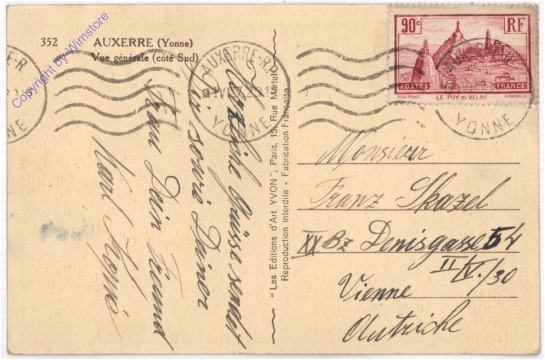 352 AUXERRE (Yonne)
Vue générale (côté Sud)
Copyright by Wimstore
AUXERRE-RP
YONNE
90c RF
POSTES FRANCE
LE PUY EN VELAY
YONNE
Herzliche Grüsse sendet
Dir sowie Deiner
Frau Dein Freund
Karl
"Les Editions d'Art YVON", Paris, 15, Rue Martel
Reproduction Interdite - Fabrication Française
Monsieur
Franz Skazel
XX Bz Denisgasse 54
II/IV./30
Vienne
Autriche
YONNE